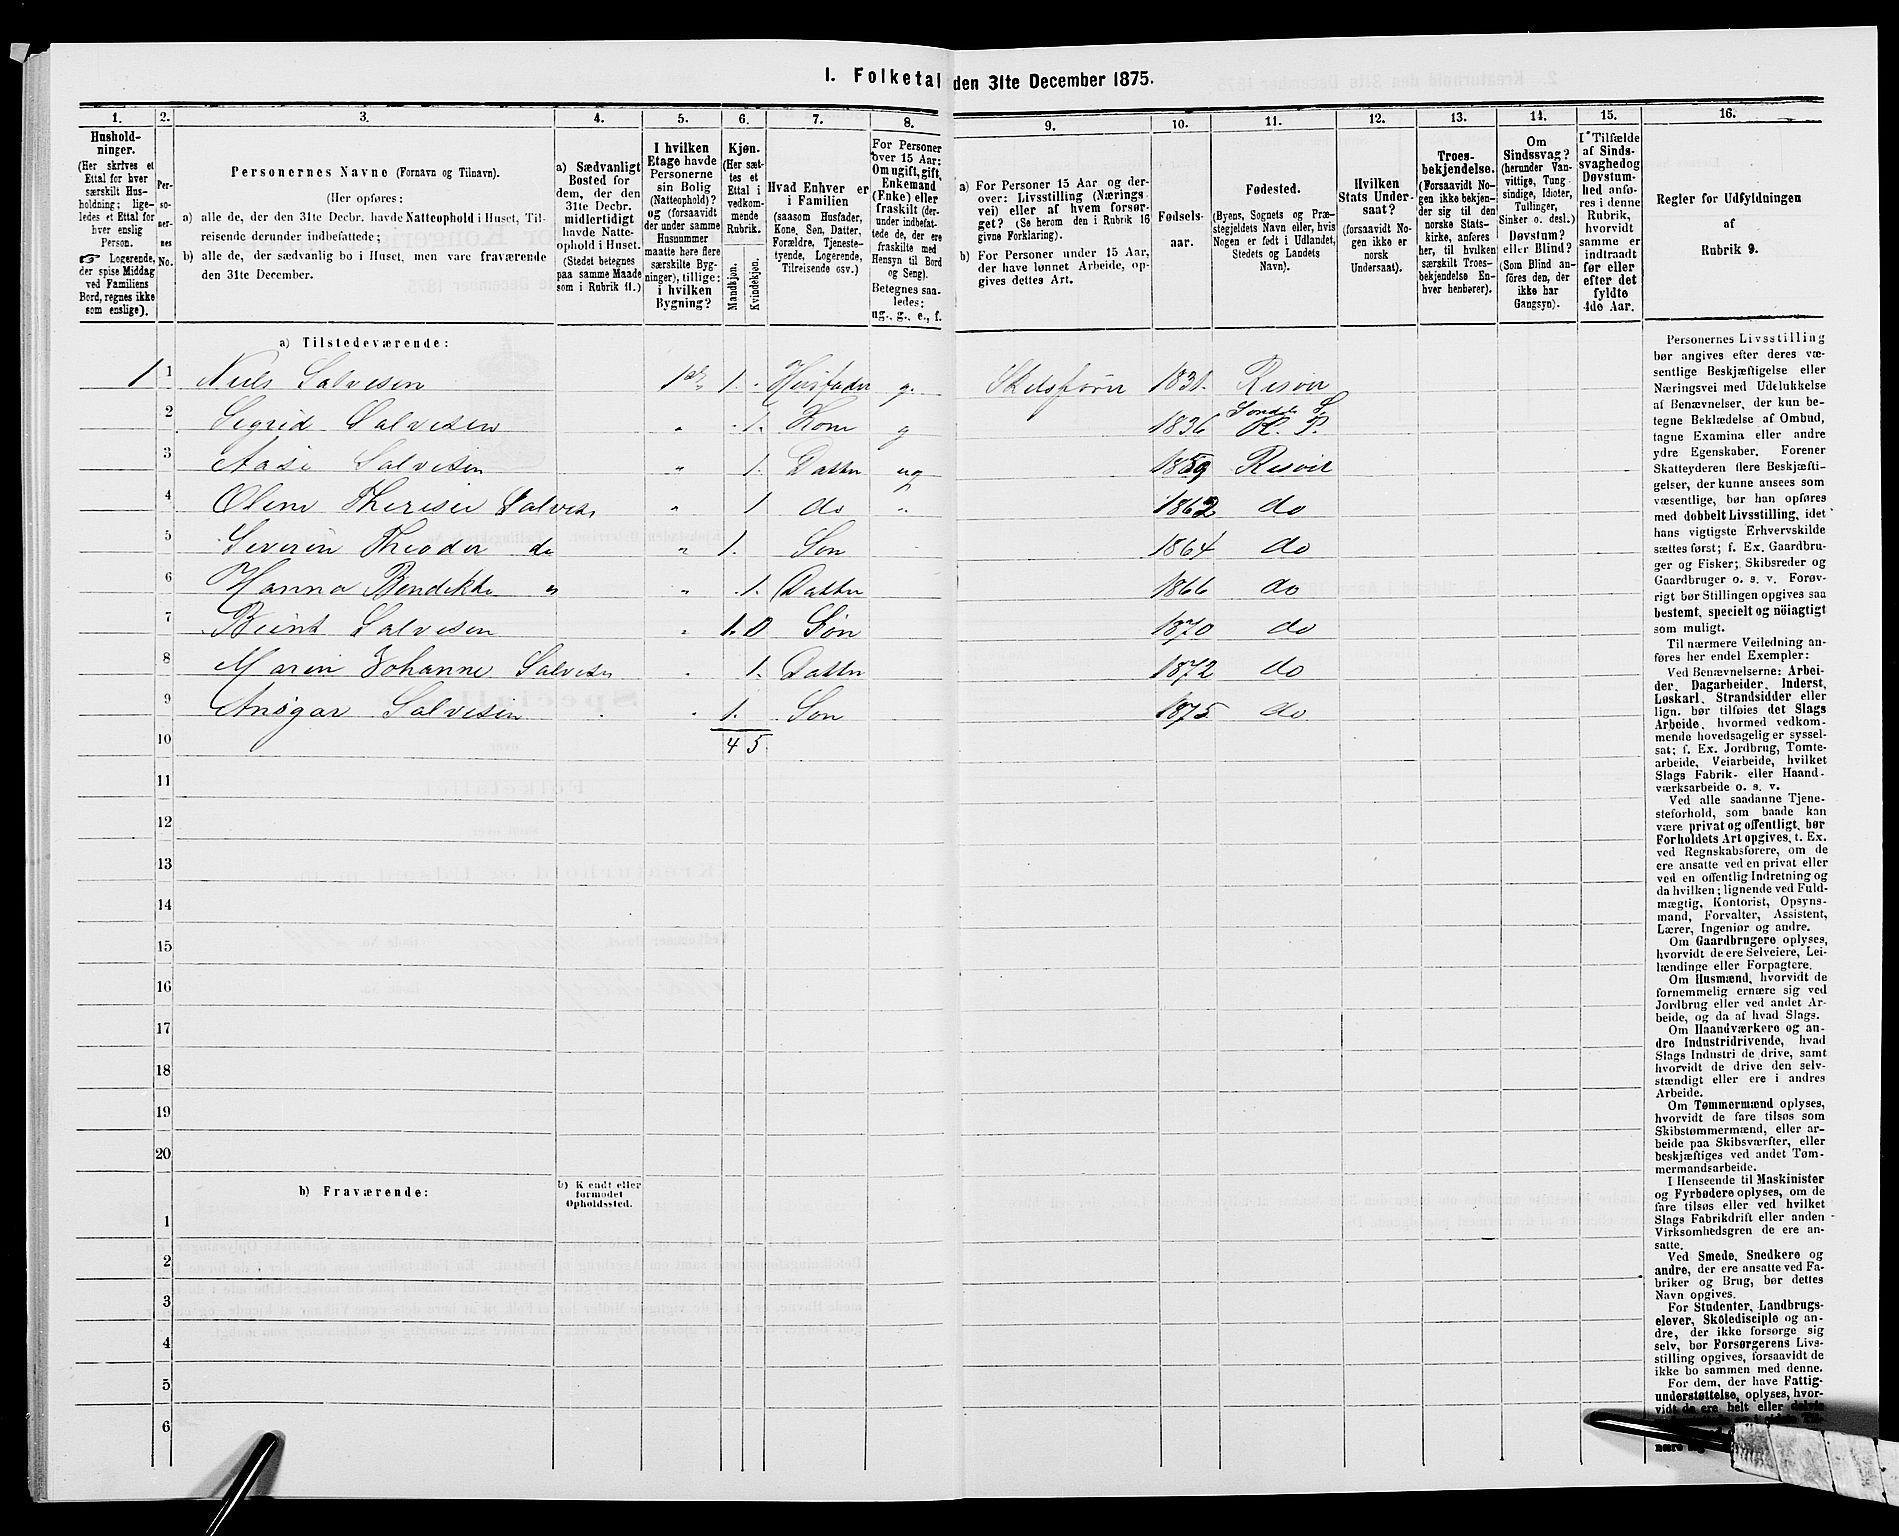 I. Folketal den 31te December 1875.
1. 2. 3. 4. 5. 6. 7. 8. 9. 10. 11. 12. 13. 14. 15. 16.
Hushold-
ninger.
(Her skrives et
Ettal for hver
særskilt Hus-
holdning; lige-
ledes et Ettal for
hver enslig
Person.
☞ Logerende,
der spise Middag
ved Familiens
Bord, regnes ikke
som enslige).
Per-
so-
ner-
nes
No.
Personernes Navne (Fornavn og Tilnavn).
(Her opføres:
a) alle de, der den 31te Decbr. havde Natteophold i Huset, Til-
reisende derunder indbefattede;
b) alle de, der sædvanlig bo i Huset, men vare fraværende
den 31te December.
a) Sædvanligt
Bosted for
dem, der den
31te Decbr.
midlertidigt
havde Natte-
ophold i Huset.
(Stedet betegnes
paa samme Maade
som i Rubrik 11.)
I hvilken
Etage havde
Personerne
sin Bolig
(Natteophold)?
og (forsaavidt
der under samme
Husnummer
maatte høre flere
særskilte Byg-
ninger), tillige:
i hvilken
Bygning?
Kjøn.
(Her sæt-
tes et
Ettal i
vedkom-
mende
Rubrik.
Mandkjøn.
Kvindekjøn.
Hvad Enhver er
i Familien
(saasom Husfader,
Kone, Søn, Datter,
Forældre, Tjeneste-
tyende, Logerende,
Tilreisende osv.)
For Personer
over 15 Aar:
Om ugift, gift,
Enkemand
(Enke) eller
fraskilt (der-
under indbefat-
tede de, der ere
fraskilte med
Hensyn til Bord
og Seng).
Betegnes saa-
ledes:
ug., g., e., f.
a) For Personer 15 Aar og der-
over: Livsstilling (Nærings-
vei) eller af hvem forsør-
get? (Se herom den i Rubrik 16
givne Forklaring).
b) For Personer under 15 Aar,
der have lønnet Arbeide, op-
gives dettes Art.
Fødsels-
aar.
Fødested.
(Byens, Sognets og Præ-
stegjeldets Navn eller, hvis
Nogen er født i Udlandet,
Stedets og Landets
Navn).
Hvilken
Stats Under-
saat?
(forsaavidt No-
gen ikke er
norsk
Undersaat).
Troes-
bekjendelse.
(Forsaavidt No-
gen ikke bekjen-
der sig til den
norske Stats-
kirke, anføres
her, til hvilken
særskilt Troes-
bekjendelse En-
hver henhører).
Om
Sindssvag?
(herunder Van-
vittige, Tung-
sindige, Idioter,
Tullinger,
Sinker o. desl.)
Døvstum?
eller Blind?
(Som Blind an-
føres den, der
ikke har
Gangsyn).
I Tilfælde
af Sinds-
svaghedog
Døvstum-
hed anfø-
res i denne
Rubrik,
hvorvidt
samme er
indtraadt
før eller
efter det
fyldte
4de Aar.
Regler for Udfyldningen
af
Rubrik 9.
a) Tilstedeværende:
1 1 Niels Salvesen 1st 1. Husfader g. 1831. Risøer
2 Sigrid Salvesen " 1. Kone g 1836 Sønde
3 Aase Salvesen " 1. Datter ug 1859 Risøer
4 Oline Therisie Salves " 1 do " 1862 do
5 Severin Theoder do " 1. Søn 1864 do
6 Hanna Bendikte " " 1. Datter 1866 do
7 Beint Salvesen " 1. 0 Søn 1870 do
8 Marin Johanne Salvesen " 1. Datter 1872 do
9 Ansgar Salvesen " 1. Søn 1875 do
10 4 5
11
12
13
14
15
16
17
18
19
20
b) Fraværende:
b) Kjendt eller
formodet
Opholdssted.
1
2
3
4
5
6
Personernes Livsstilling
bør angives efter deres væ-
sentlige Beskjæftigelse eller
Næringsvei med Udelukkelse
af Benævnelser, der kun be-
tegne Beklædelse af Ombud,
tagne Examina eller andre
ydre Egenskaber. Forener
Skatteyderen flere Beskjæfti-
gelser, der kunne ansees som
væsentlige, bør han opføres
med dobbelt Livsstilling, idet
hans vigtigste Erhvervskilde
sættes først; f. Ex. Gaardbru-
ger og Fisker; Skibsreder og
Gaardbruger o. s. v. Forøv-
rigt bør Stillingen opgives saa
bestemt, specielt og nöiagtigt
som muligt.
Til nærmere Veiledning an-
føres her endel Exempler:
Ved Benævnelserne: Arbei-
der, Dagarbeider, Inderst,
Løskarl, Strandsidder eller
lign. bør tilføies det Slags
Arbeide, hvormed vedkom-
mende hovedsagelig er syssel-
sat; f. Ex. Jordbrug, Tomte-
arbeide, Veiarbeide, hvilket
Slags Fabrik- eller Haand-
værksarbeide o. s. v.
Ved alle saadanne Tjene-
steforhold, som baade kan
være privat og offentligt, bør
Forholdets Art opgives, t. Ex.
ved Regnskabsførere, om de
ere ansatte ved en privat eller
ved en offentlig Indretning og
da hvilken; lignende ved Fuld-
mægtig, Kontorist, Opsyns-
mand, Forvalter, Assistent,
Lærer, Ingeniør og andre.
Om Gaardbrugere oplyses,
hvorvidt de ere Selveiere, Lei-
lændinge eller Forpagtere.
Om Husmænd, hvorvidt de
fornemmelig ernære sig ved
Jordbrug eller ved andet Ar-
beide, og da af hvad Slags.
Om Haandværkere og an-
dre Industridrivende, hvad
Slags Industri de drive, samt
hvorvidt de drive den selv-
stændigt eller ere i andres
Arbeide.
Om Tømmermænd oplyses,
hvorvidt de fare tilsøs som
Skibstømmermænd, eller ar-
beide paa Skibsværfter, eller
beskjæftiges ved andet Tøm-
mermandsarbeide.
I Henseende til Maskinister
og Fyrbødere oplyses, om de
fare tilsøs eller ved hvilket
Slags Fabrikdrift eller anden
Virksomhedsgren de ere an-
satte.
Ved Smede, Snedkere og
andre, der ere ansatte ved Fa-
briker og Brug, bør dettes
Navn opgives.
For Studenter, Landbrugs-
elever, Skoledisciple og an-
dre, der ikke forsørge sig
selv, bør Forsørgerens Livs-
stilling opgives, forsaavidt de
ikke bo sammen med denne.
For dem, der have Fattig-
understøttelse, oplyses, hvor-
vidt de ere helt eller delvis